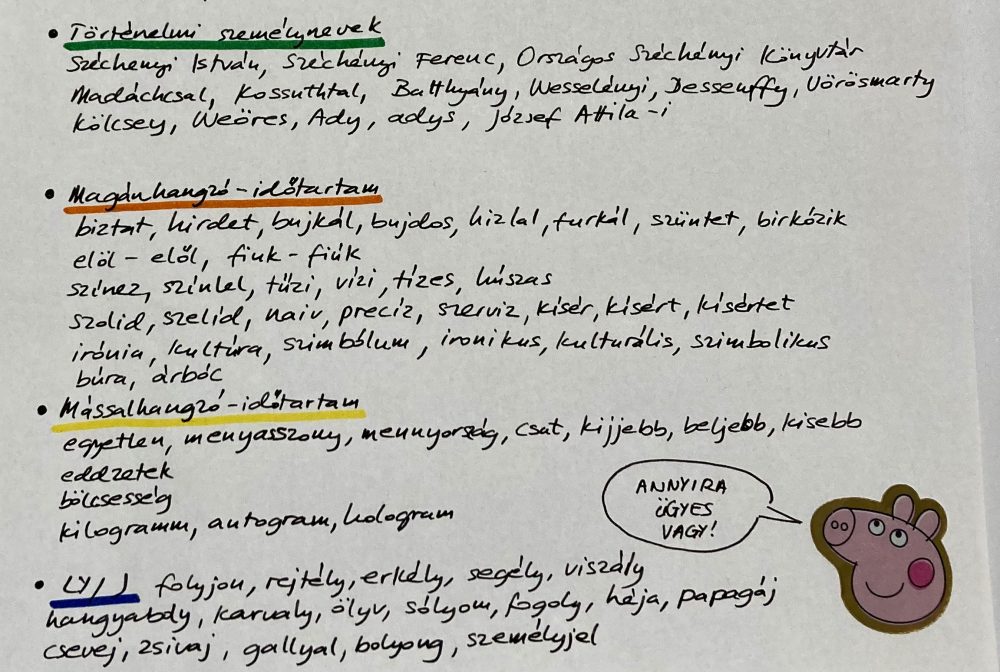 • Történelmi személynevek
Széchenyi István, Széchényi Ferenc, Országos Széchényi Könyvtár
Madáchcsal, Kossuthtal, Batthyány, Wesselényi, Dessewffy, Vörösmarty
Kölcsey, Weöres, Ady, adys, József Attila-i
• Magánhangzó-időtartam
biztat, hirdet, bujkál, bujdos, hizlal, furkál, szüntet, birkózik
elöl - elől, fiuk - fiúk
színez, színlel, tűzi, vízi, tízes, húszas
szolid, szelíd, naiv, precíz, szerviz, kísér, kísért, kísértet
irónia, kultúra, szimbólum, ironikus, kulturális, szimbolikus
búra, árbóc
• Mássalhangzó-időtartam
egyetlen, menyasszony, mennyország, csat, kijjebb, beljebb, kisebb
eddzetek
bölcsesség
kilogramm, autogram, hologram
ANNYIRA
ÜGYES
VAGY!
• LY/J folyjon, rejtély, erkély, segély, viszály
hangyaboly, karvaly, ölyv, sólyom, fogoly, héja, papagáj
csevej, zsivaj, gallyal, bolyong, személyjel